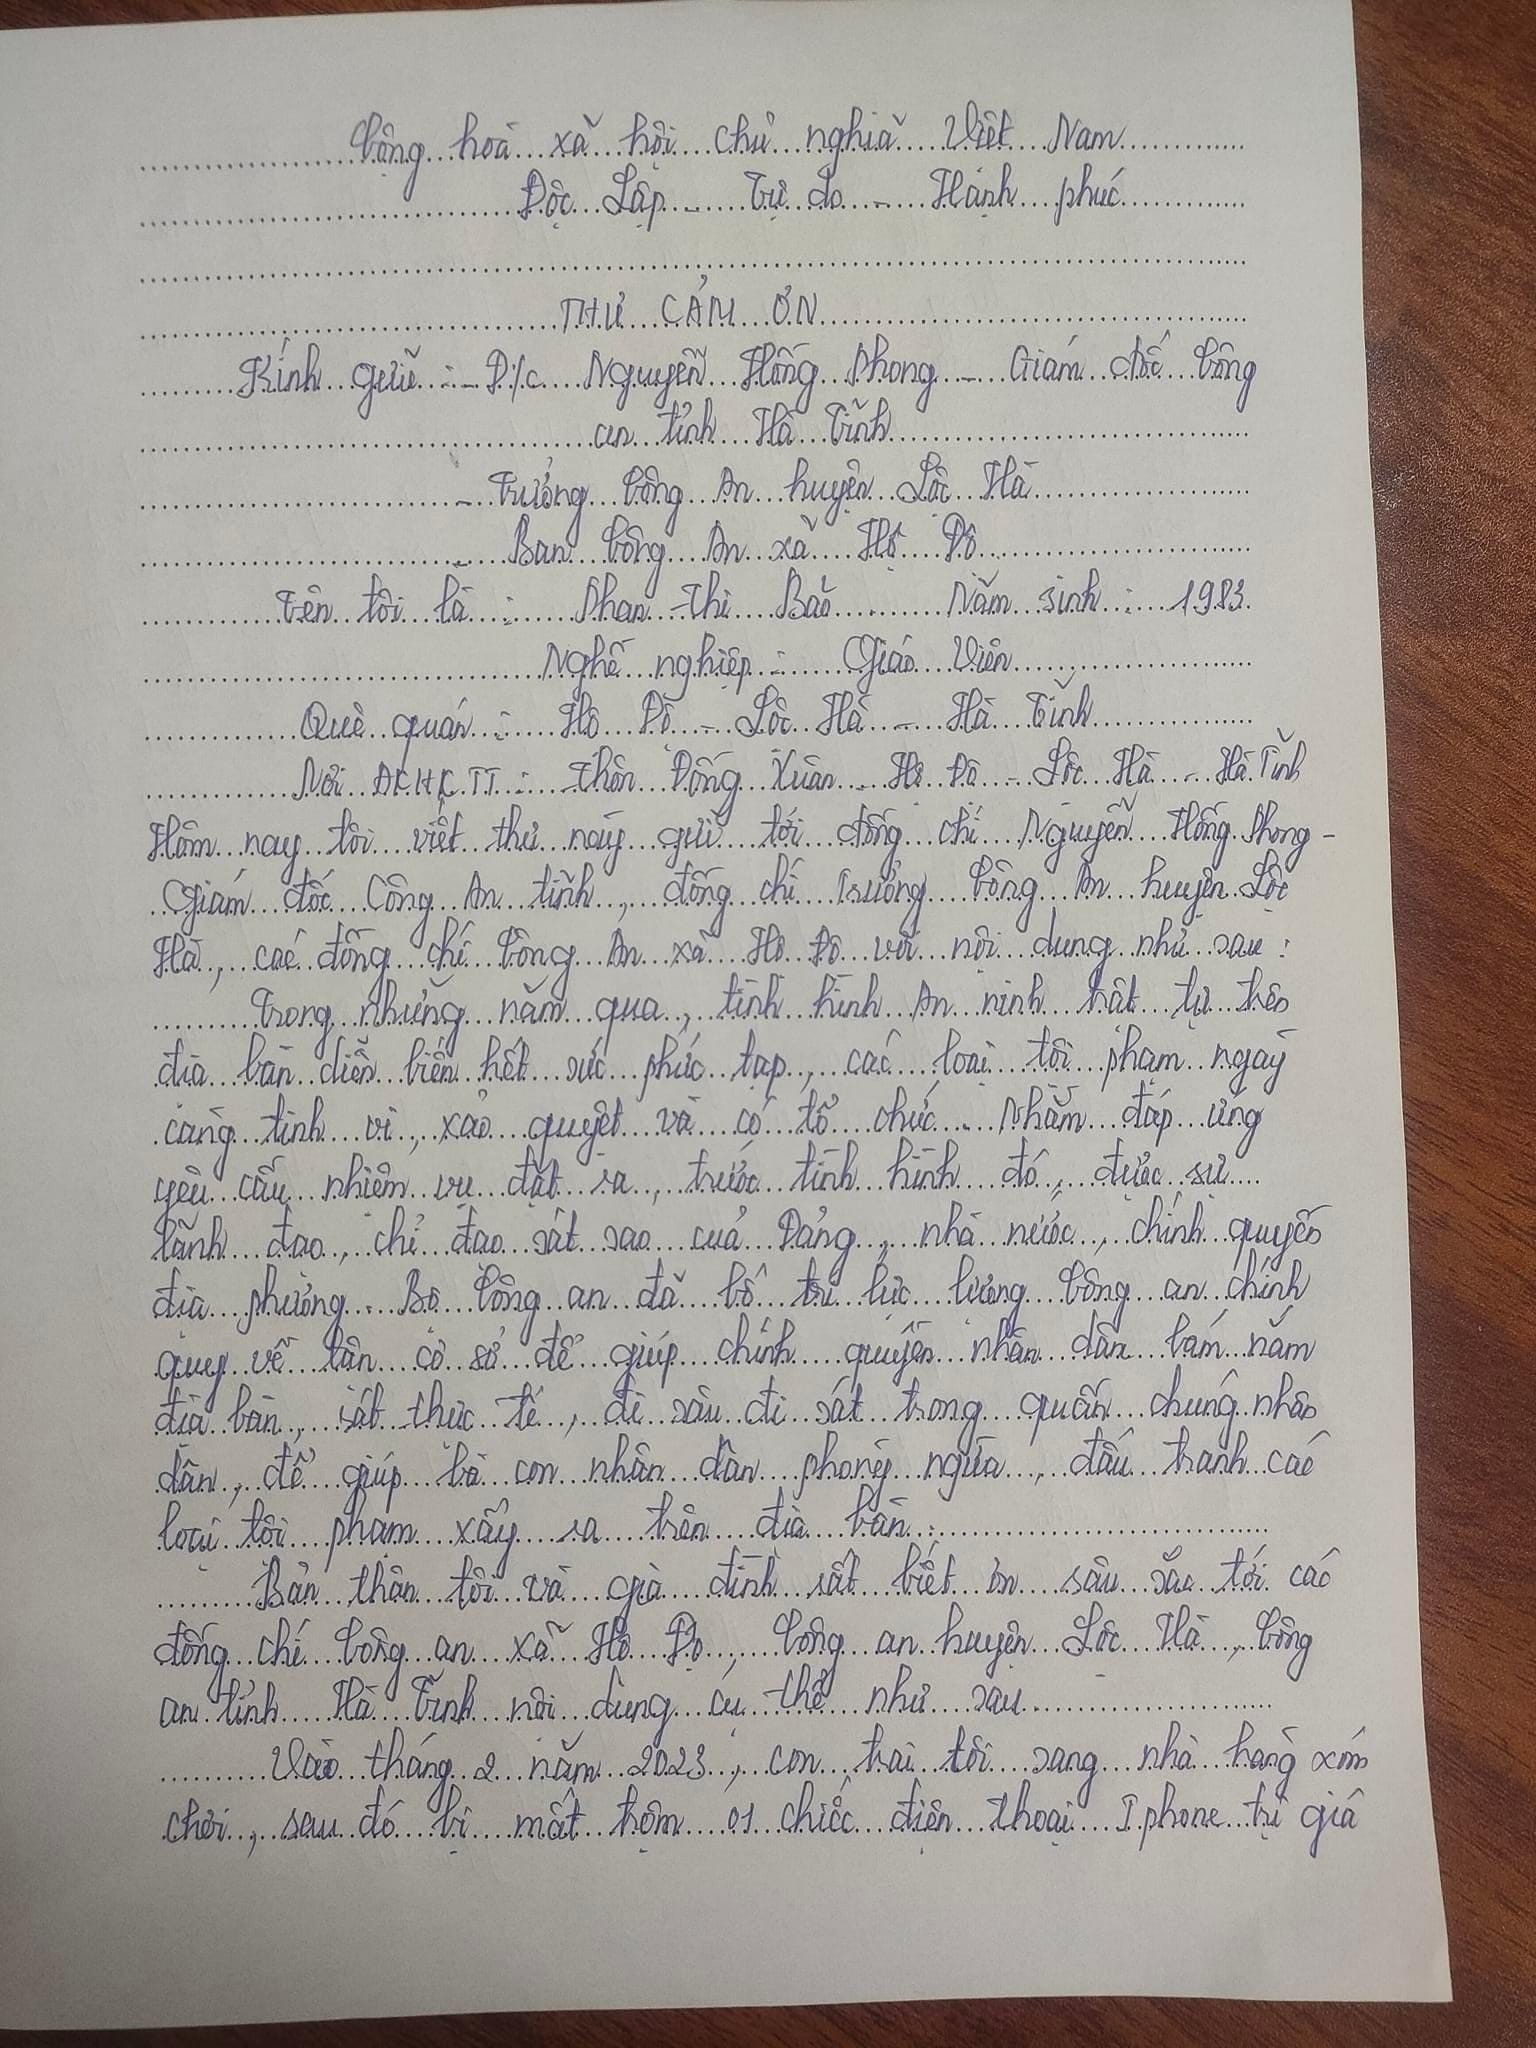 Cộng hoà xã hội chủ nghiã Việt Nam
Độc Lập - Tự do - Hạnh phúc
THƯ CẢM ƠN
Kính gửi : - Đ/c Nguyễn Hồng Phong - Giám đốc Công
an tỉnh Hà Tĩnh
- Trưởng Công An huyện Lộc Hà
- Ban Công An xã Hộ Độ
Tên tôi là : Phan Thị Bảo Năm sinh : 1983
Nghề nghiệp : Giáo Viên
Quê quán : Hộ Độ - Lộc Hà - Hà Tĩnh
Nơi ĐKHKTT : Thôn Đồng Xuân - Hộ Độ - Lộc Hà - Hà Tĩnh
Hôm nay tôi viết thư này gửi tới đồng chí Nguyễn Hồng Phong -
Giám đốc Công An tỉnh, đồng chí Trưởng Công An huyện Lộc
Hà, các đồng chí Công An xã Hộ Độ với nội dung như sau :
Trong những năm qua, tình hình An ninh trật tự trên
địa bàn diễn biến hết sức phức tạp, các loại tội phạm ngày
càng tinh vi, xảo quyệt và có tổ chức. Nhằm đáp ứng
yêu cầu nhiệm vụ đặt ra, trước tình hình đó, được sự
lãnh đạo, chỉ đạo sát sao của Đảng, nhà nước, chính quyền
địa phương. Bộ Công an đã bố trí lực lượng Công an chính
quy về tận cơ sở để giúp chính quyền nhân dân bám nắm
địa bàn, sát thực tế, đi sâu đi sát trong quần chúng nhân
dân, để giúp bà con nhân dân phòng ngừa, đấu tranh các
loại tội phạm xẩy ra trên địa bàn.
Bản thân tôi và gia đình rất biết ơn sâu sắc tới các
đồng chí Công an xã Hộ Độ, Công an huyện Lộc Hà, Công
an tỉnh Hà Tĩnh nội dung cụ thể như sau
Vào tháng 2 năm 2023, con trai tôi sang nhà hàng xóm
chơi, sau đó bị mất trộm 01 chiếc điện thoại Iphone trị giá